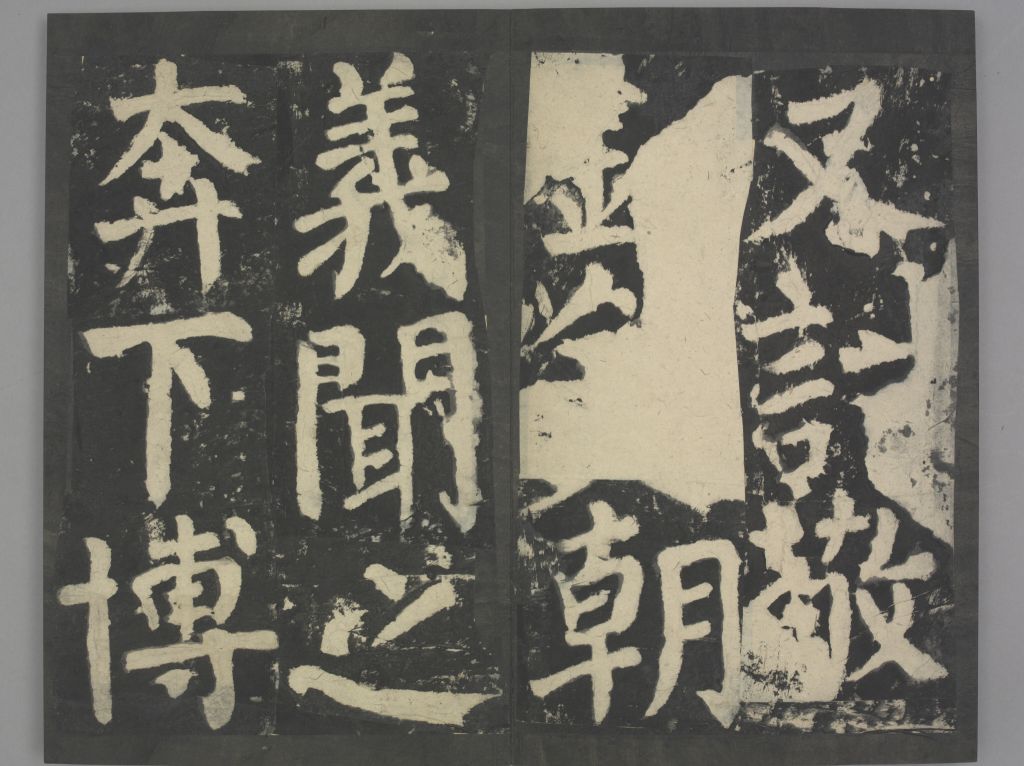 又討敬
朝
義聞之
奔下博